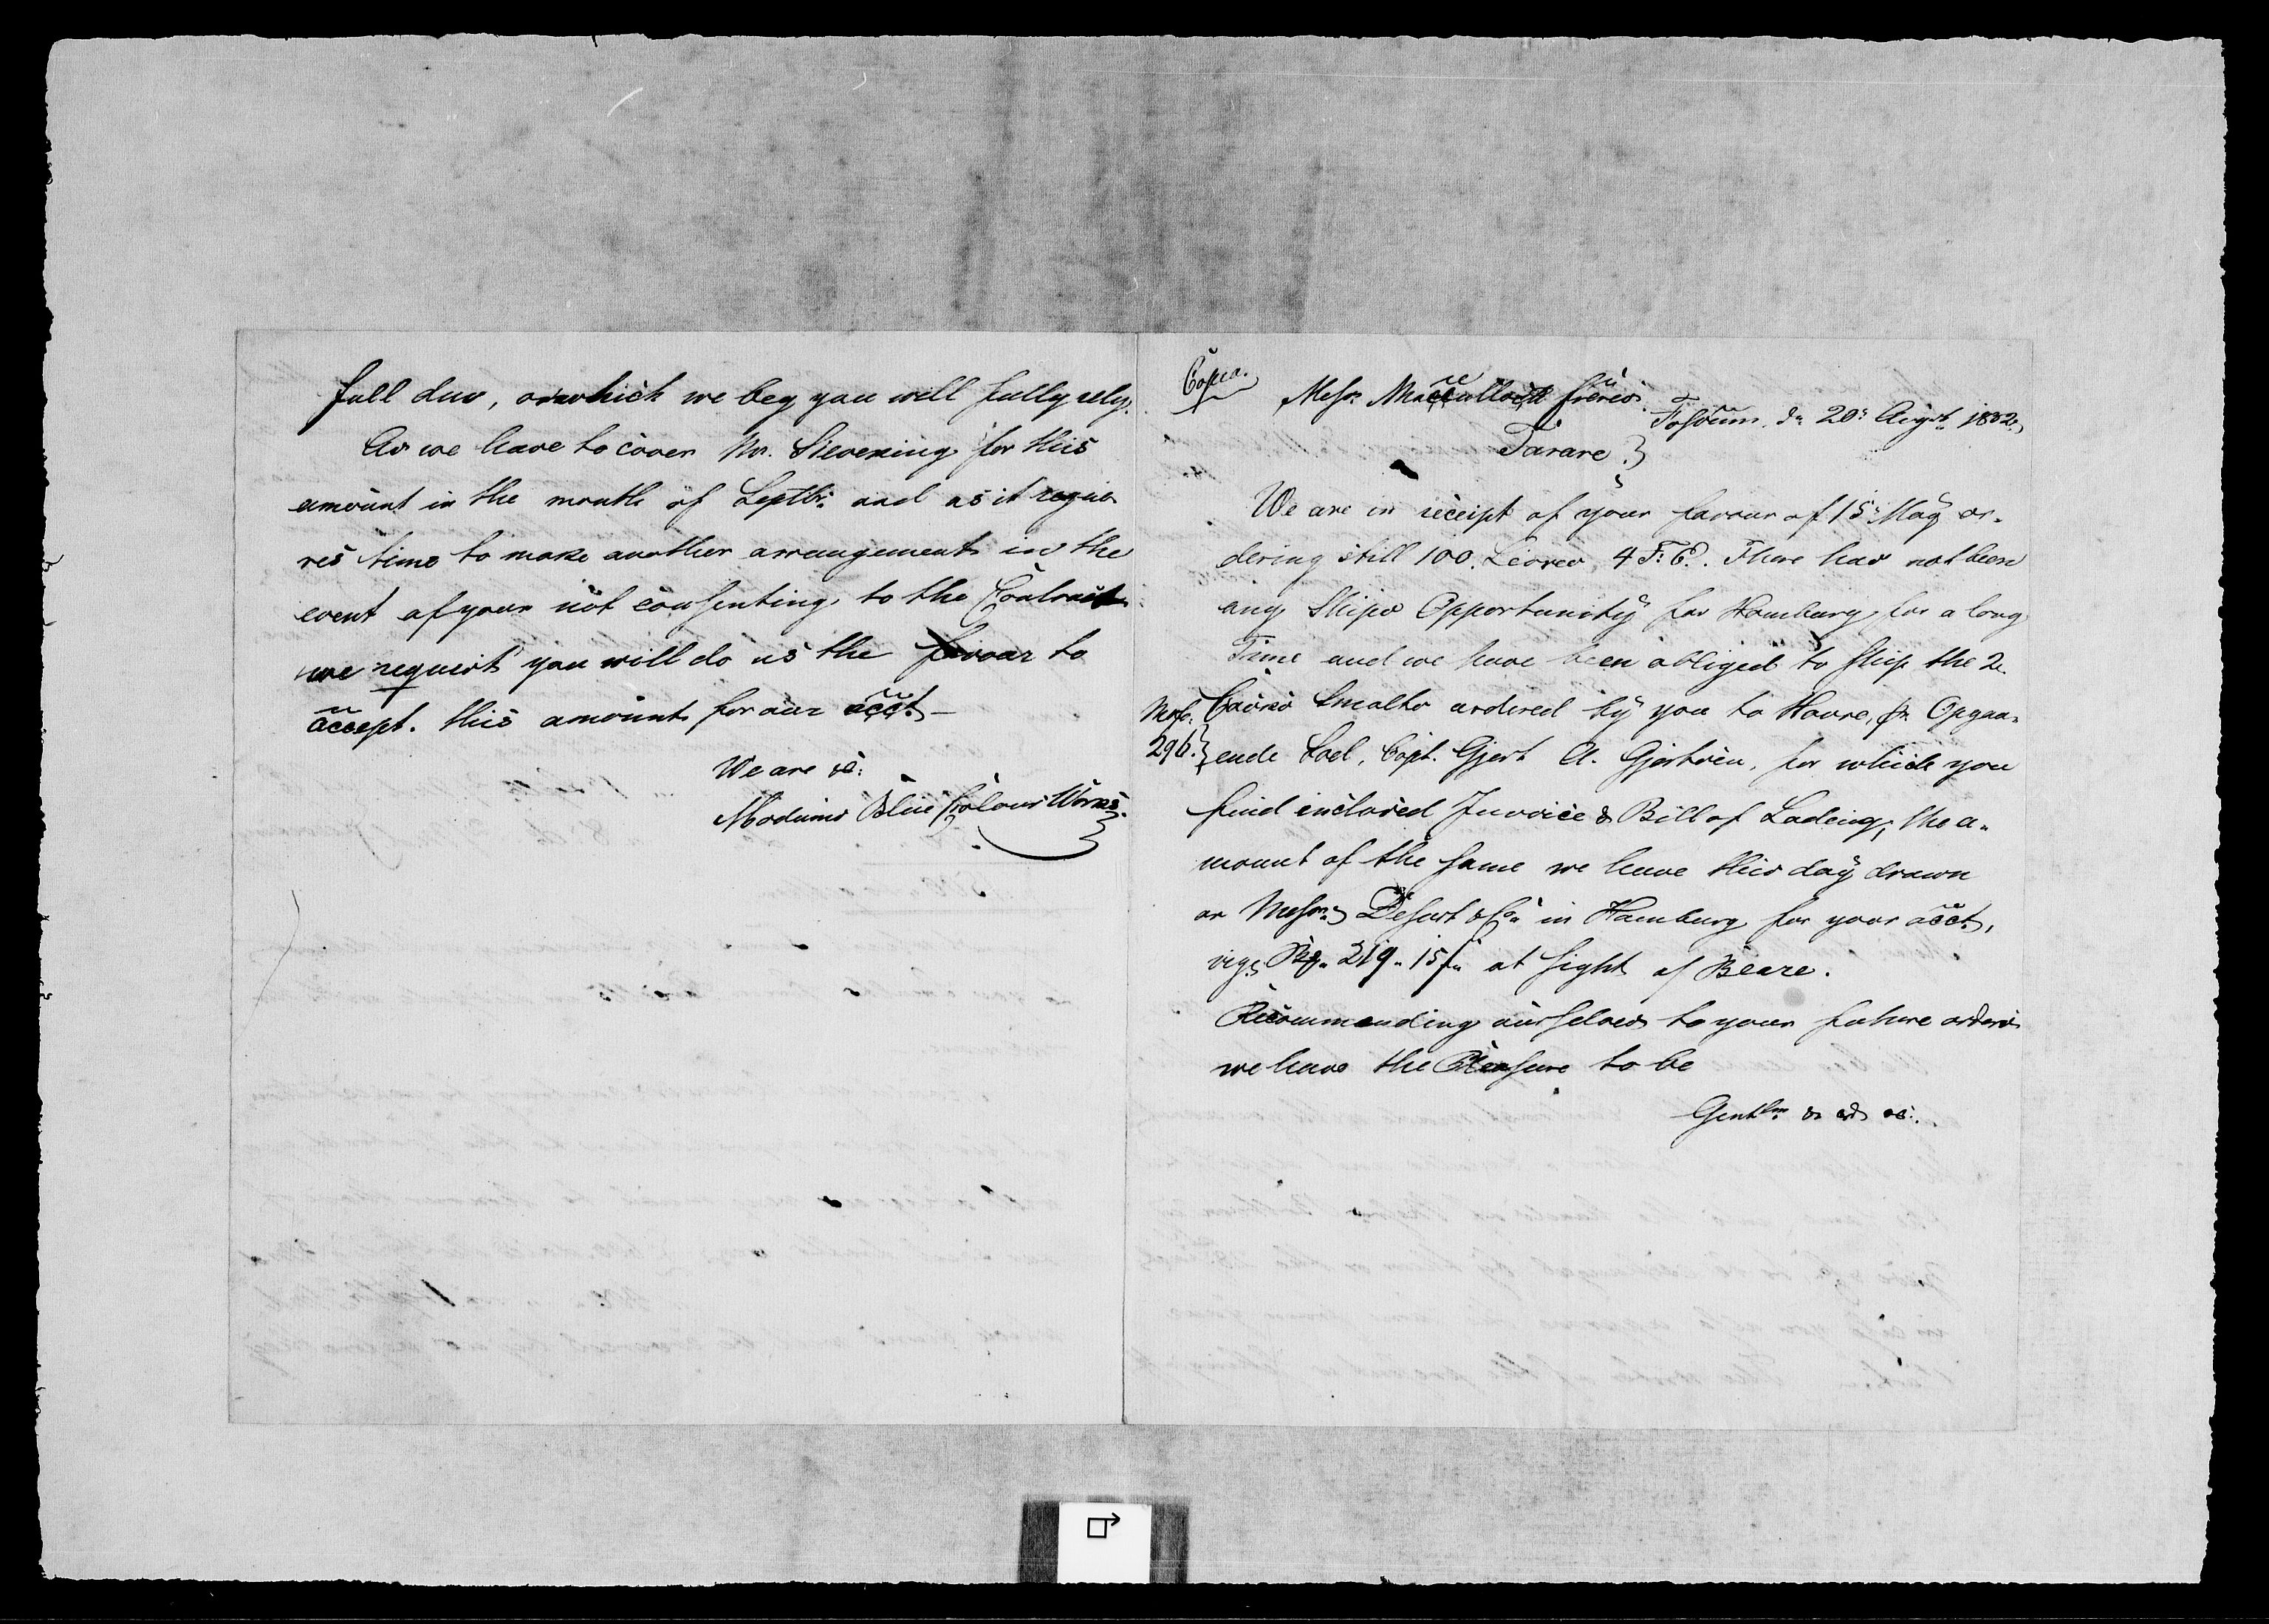 full due, on which we beg you will fully rely.
As we have to cover Mr. Sieveking for this
amount in the month of Septbr. and as it requi-
res time to make another arrangement in the
event of your not consenting to the Contract
we request you will do us the favour to
accept. this amount for our acct. –
We are &c:
Modums Blue Colour Works.
Copia.
Messrs. Macculloch frères
Fossum. d. 20. Augst. 1832.
Tarare.
We are in receipt of your favour of 15. May or-
dering still 100. Livres, 4 F: E. There has not been
any Ships Opportunity for Hamburg for a long
Time and we have been obliged to ship the 2
Casks Smalts ordered by you to Havre, pr. Opgaa-
296.
ende Soel, Capt. Gjert A. Gjertsen, for which you
find inclosed Invoice & Bill of Lading; the a-
mount of the same we have this day drawn
on Messrs. Dessart & Co. in Hamburg for your acct.,
219 „ 15 at sight of
Recommending ourselves to your future orders
we have the Pleasure to be
Gentlm.